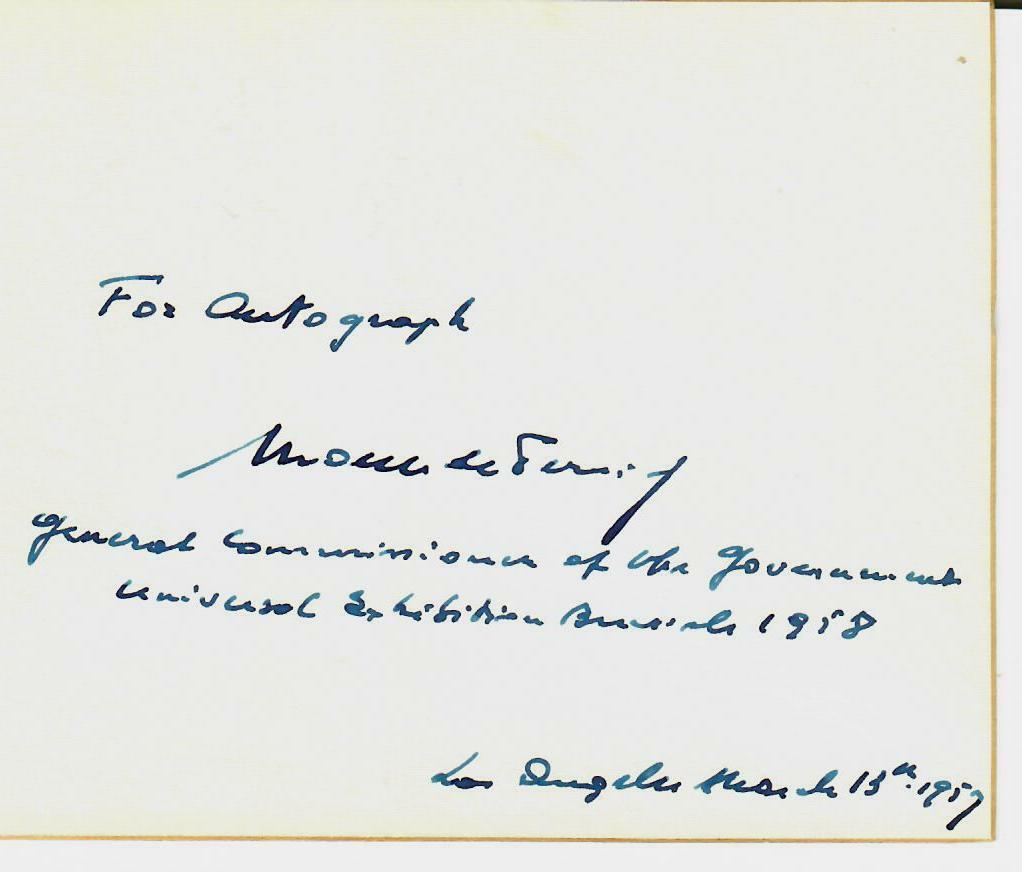 For Autograph
Moens de Fernig
General Commissioner of the Government
Universal Exhibition Brussels 1958
Los Angeles March 13th. 1957